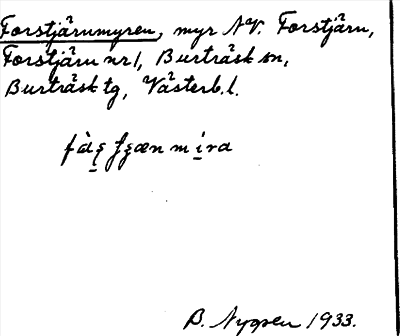 Forstjärnmyren, myr NV. Forstjärn,
Forstjärn nr 1, Burträsk sn,
Burträsk tg, Västerb. l.
B. Nygren 1933.